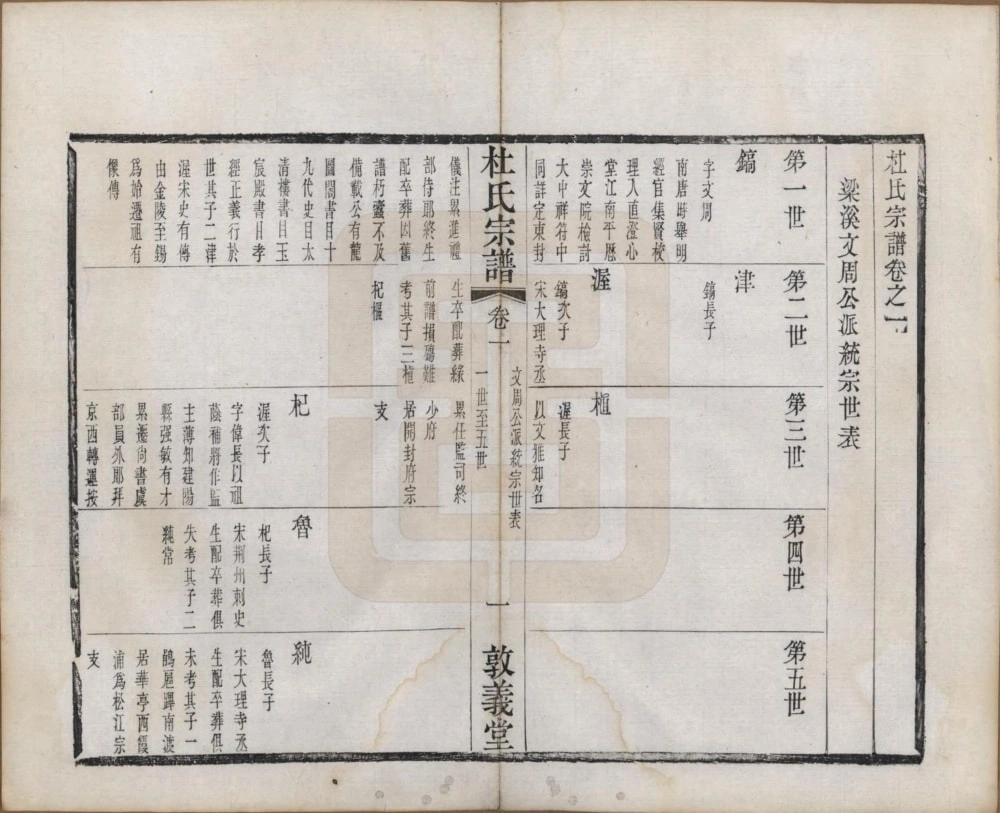 杜氏宗譜卷之一
梁溪文周公派統宗世表
第一世
第二世
第三世
第四世
第五世
鎬
字文周
南唐時舉明
經官集賢校
理入直澄心
堂江南平歷
崇文院檢討
大中祥符中
同詳定東封
儀注累進禮
部侍郎終生
配卒葬因舊
譜朽蠹不及
備載公有龍
圖閣書目十
九代史目太
清樓書目玉
宸殿書目孝
經正義行於
世其子二津
渥宋史有傳
由金陵至錫
為始遷祖有
像傳
津
鎬長子
渥
鎬次子
宋大理寺丞
生卒配葬緣
前譜損碭難
考其子三植
杞樞
植
渥長子
以文雅知名
累任監司終
少府
居開封府宗
支
杞
渥次子
字偉長以祖
蔭補將作監
主薄知建陽
縣强敏有才
累遷尚書虞
部員外郎拜
京西轉運按
魯
杞長子
宋荆州刺史
生配卒葬俱
失考其子二
純常
純
魯長子
宋大理寺丞
生配卒葬俱
未考其子一
鶴扈蹕南渡
居華亭西霞
浦為松江宗
支
杜氏宗譜
卷一
文周公派統宗世表
一世至五世
一
敦義堂